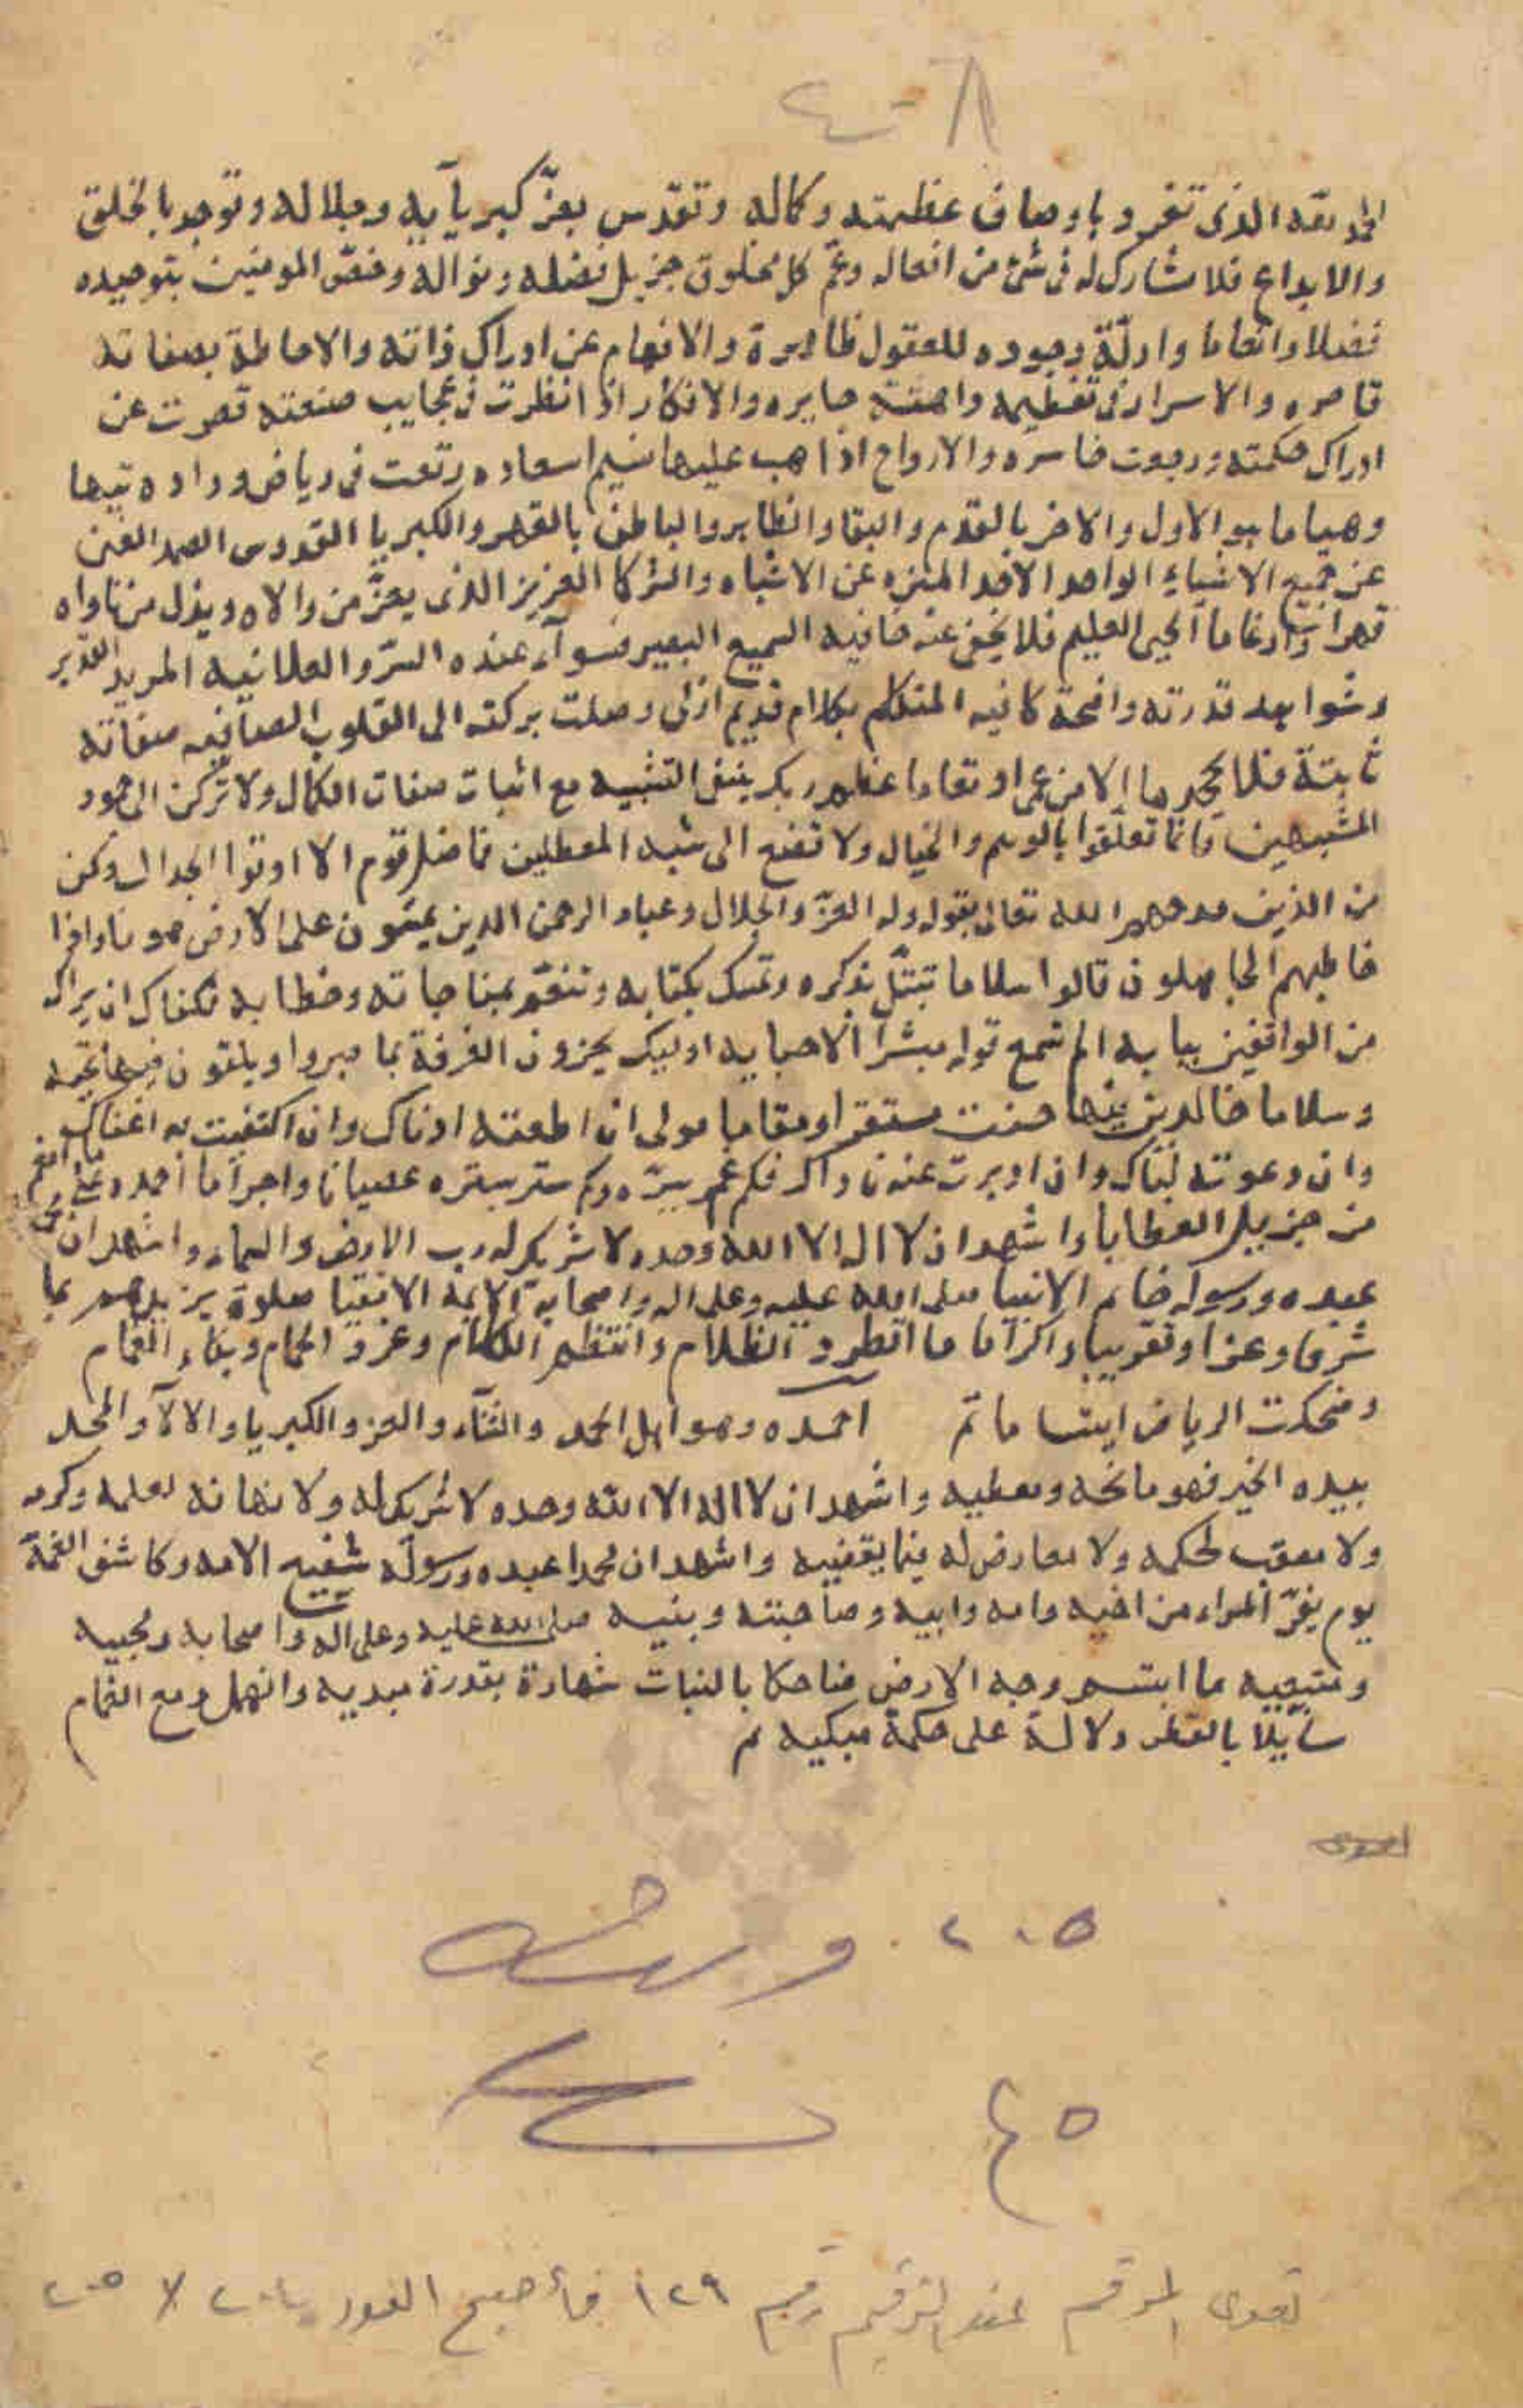 الحمد لله الذى تفرد باوصاف عظمته وكماله وتقدس بعزّ كبريآيه وجلاله وتوحد بالخلق
والابداع فلا مشارك له فى شئ من افعاله وعمّ كل مخلوق جزيل فضله ونواله وخصّ المومنين بتوحيده
فضلا وانعاما وادلّة وجوده للعقول ظاهرة والافهام عن ادراك ذاته والاحاطة بصفاته
قاصره والاسرار فى تعظيمه حايره والافكار اذا نظرت فى عجايب صنعته قصرت عن
ادراك حكمته ورجعت خاسره والارواح اذا هب عليها نسيم اسعاده رتعت فى رياض وداده تيها
وهياما هو الاول والاخر بالقدم والبقا والظاهر والباطن بالقهر والكبريا القدوس الصمد الغنى
عن جميع الاشياء الواحد الاحد المنزه عن الاشباه والشركا العزيز الذى يعزّ من والاه ويذل من ناواه
قهرا وارغاما الحى العليم فلا يخفى عنه خافيه السميع البصير فسوآء عنده السرّ والعلانيه المريد القدير
وشواهد قدرته واضحة كافيه المتكلم بكلام قديم ازلى وصلت بركته الى القلوب الصافيه صفاته
ثابتة فلا يجحدها الا من عمى او تعاما عظم ربك بنفى التشبيه مع اثبات صفات الكمال ولا تركن الى جمود
المشبهين فانما تعلّقوا بالوهم والخيال ولا تصغ الى شبه المعطلين فما ضل قوم الا اوتوا الجدال وكن
من الذين مدحهم الله تعالى بقوله وله العزّ والجلال وعباد الرحمن الذين يمشون على الارض هونا واذا
خاطبهم الجاهلون قالوا سلاما تبتّل بذكره وتمسك بكتابه وتنعّم بمناجاته وخطابه فكفاك ان يراك
من الواقفين ببابه الم تسمع قوله مبشرا لاحبابه اوليك يجزون الغرفة بما صبروا ويلقون فيها تحية
وسلاما خالدين فيها حسنت مستقرا ومقاما مولى ان اطعته ادناك وان اكتفيت به اغناك
وان دعوته لبّاك وان ادبرت عنه ناداك فكم غمر ببرّه وكم ستر بستره عصيانا واجراما احمده على ما انعم
من جزيل العطايا واشهد ان لا اله الا الله وحده لا شريك له رب الارض والسماء واشهد ان محمدا
عبده ورسوله خاتم الانبيا صلى الله عليه وعلى اله واصحابه الايمة الاتقيا صلوة يزيدهم بها
شرفا وعزا وتقريبا واكراما ما اطرد الظلام وانتظم الكلام وغرد الحمام وبكاء الغمام
وضحكت الرياض ابتساما تم احمده وهو اهل الحمد والثنآء والعز والكبريا والالآ والمجد
بيده الخير فهو مانحه ومعطيه واشهد ان لا اله الا الله وحده لا شريك له ولا نهاية لعلمه وكرمه
ولا معقب لحكمه ولا معارض له فيما يقضيه واشهد ان محمدا عبده ورسوله شفيع الامه وكاشف الغمة
يوم يفرّ المراء من اخيه وامه وابيه وصاحبته وبنيه صلى الله عليه وعلى آله واصحابه ومحبيه
ومتبعيه ما ابتسم وجه الارض ضاحكا بالنبات شهادة بقدرة مبديه وانهمل دمع الغمام
سآيلا بالقطر دلالة على حكمة مبكيه تم
٢٠٥ ورقه
٤٥
عند الترقيم رقم ١٢٩ فأصبح العدد ٢٠٥